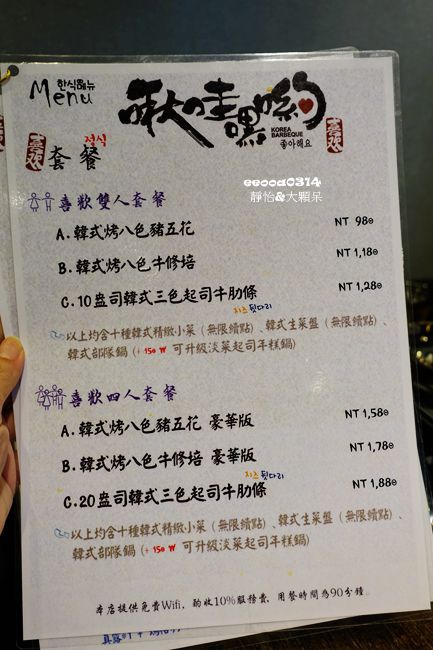 한식메뉴
Menu
啾哇嘿喲
KOREA
BARBEQUE
좋아해요
喜欢
喜欢
정식
套餐
eeooa0314
靜怡&大顆呆
喜歡雙人套餐
A.韓式烤八色豬五花 NT 980
B.韓式烤八色牛修培 NT 1,180
C.10盎司韓式三色起司牛肋條 NT 1,280
치즈 뒷다리
以上均含十種韓式精緻小菜(無限續點)、韓式生菜盤(無限續點)、
韓式部隊鍋(+150 ₩ 可升級淡菜起司年糕鍋)
喜歡四人套餐
A.韓式烤八色豬五花 豪華版 NT 1,580
B.韓式烤八色牛修培 豪華版 NT 1,780
치즈 뒷다리
C.20盎司韓式三色起司牛肋條 NT 1,880
以上均含十種韓式精緻小菜(無限續點)、韓式生菜盤(無限續點)、
韓式部隊鍋(+150 ₩ 可升級淡菜起司年糕鍋)
本店提供免費Wifi,酌收10%服務費,用餐時間為90分鐘。